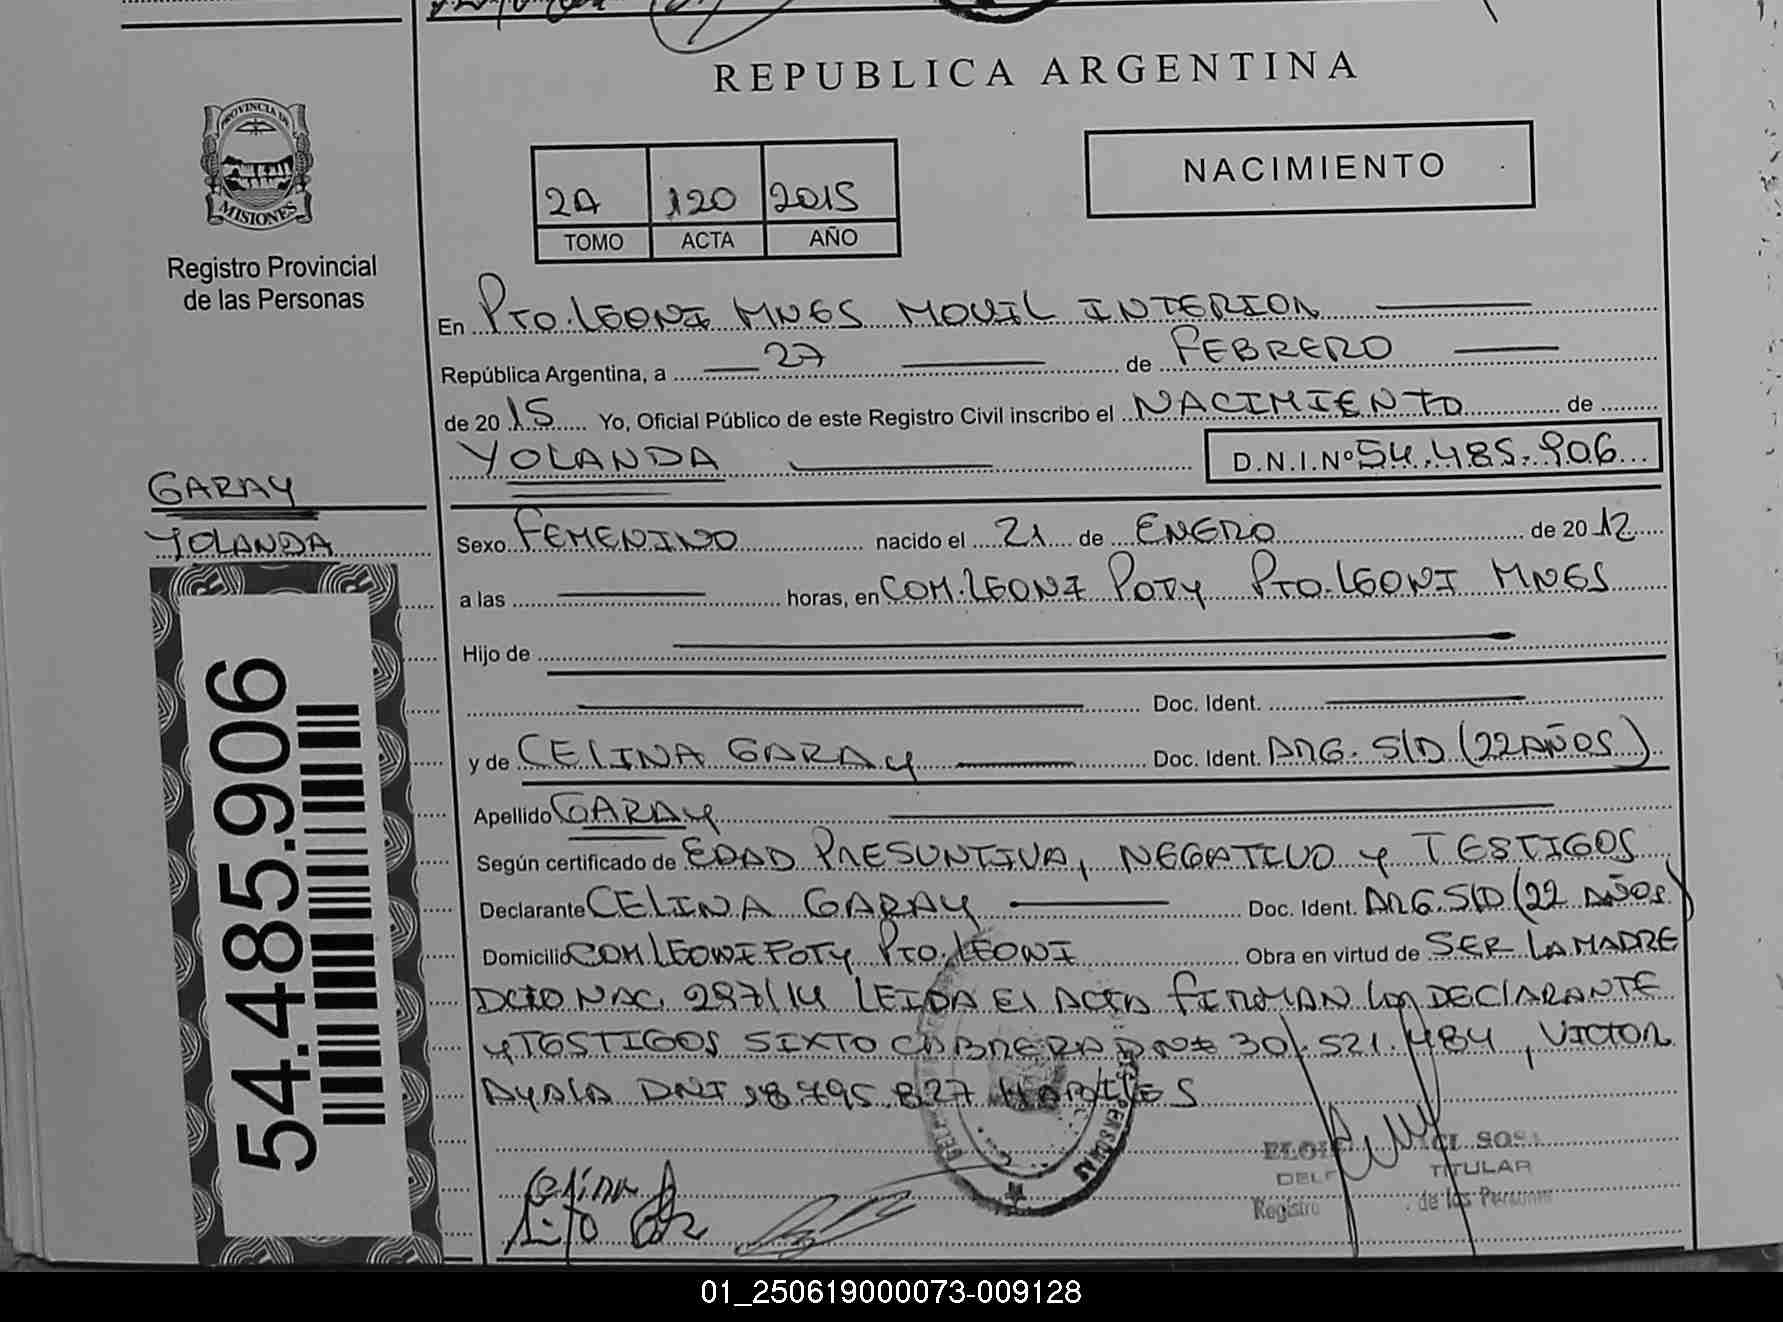 REPUBLICA ARGENTINA
PROVINCIA DE
MISIONES
Registro Provincial
de las Personas
2A 120 2015
TOMO ACTA AÑO
NACIMIENTO
En PTO. LEONI MNES MOVIL INTERIOR
República Argentina, a 27 de FEBRERO
de 2015 Yo, Oficial Público de este Registro Civil inscribo el NACIMIENTO de
YOLANDA D.N.I.Nº 54.485.906
GARAY
YOLANDA
Sexo FEMENINO nacido el 21 de ENERO de 2012
a las horas, en COM. LEONI POTY PTO. LEONI MNES
Hijo de
Doc. Ident.
y de CELINA GARAY Doc. Ident. ARG. S/D (22 AÑOS)
Apellido GARAY
Según certificado de EDAD PRESUNTIVA, NEGATIVO Y TESTIGOS
Declarante CELINA GARAY Doc. Ident. ARG. S/D (22 AÑOS)
Domicilio COM. LEONI POTY PTO. LEONI Obra en virtud de SER LA MADRE
DCTO NAC. 297/14 LEIDA EL ACTA FIRMAN LA DECLARANTE
Y TESTIGOS SIXTO CABRERA DNI 30.521.484, VICTOR
AYALA DNI 18.795.827 HABILES
54.485.906
SOSA
TITULAR
Registro de las Personas
PERSONAS
Celina
01_250619000073-009128